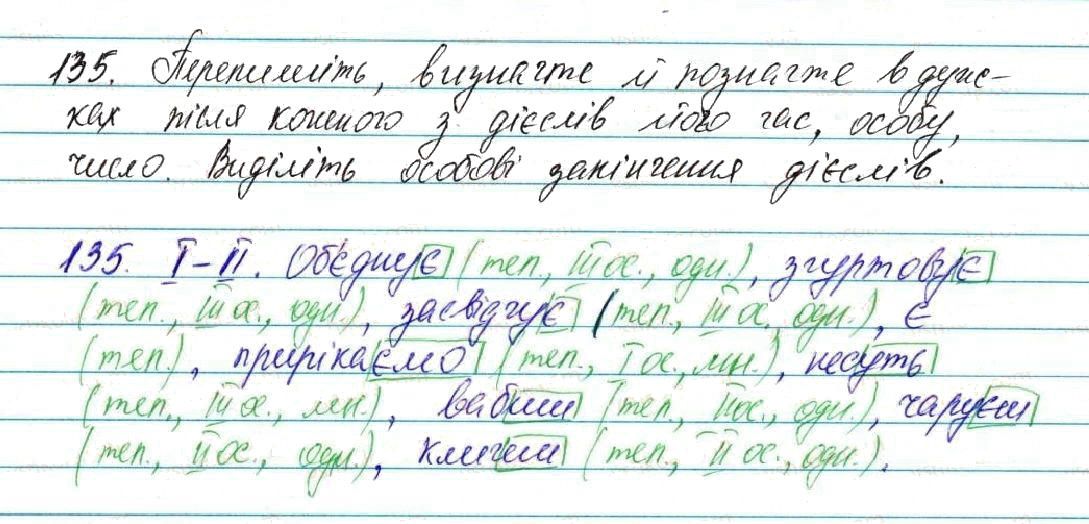 135. Перепишіть, визначте й позначте в дуж-
ках після кожного з дієслів його час, особу,
число. Виділіть особові закінчення дієслів.
135. І–ІІ. Об'єднує (теп., ІІІ ос., одн.), згуртовує
(теп., ІІІ ос., одн.), засвідчує (теп., ІІІ ос., одн.), є
(теп), прирікаємо (теп., І ос., мн.), несуть
(теп., ІІІ ос., мн.), вабиш (теп., ІІ ос., одн.), чаруєш
(теп., ІІ ос., одн.), кличеш (теп., ІІ ос., одн.).